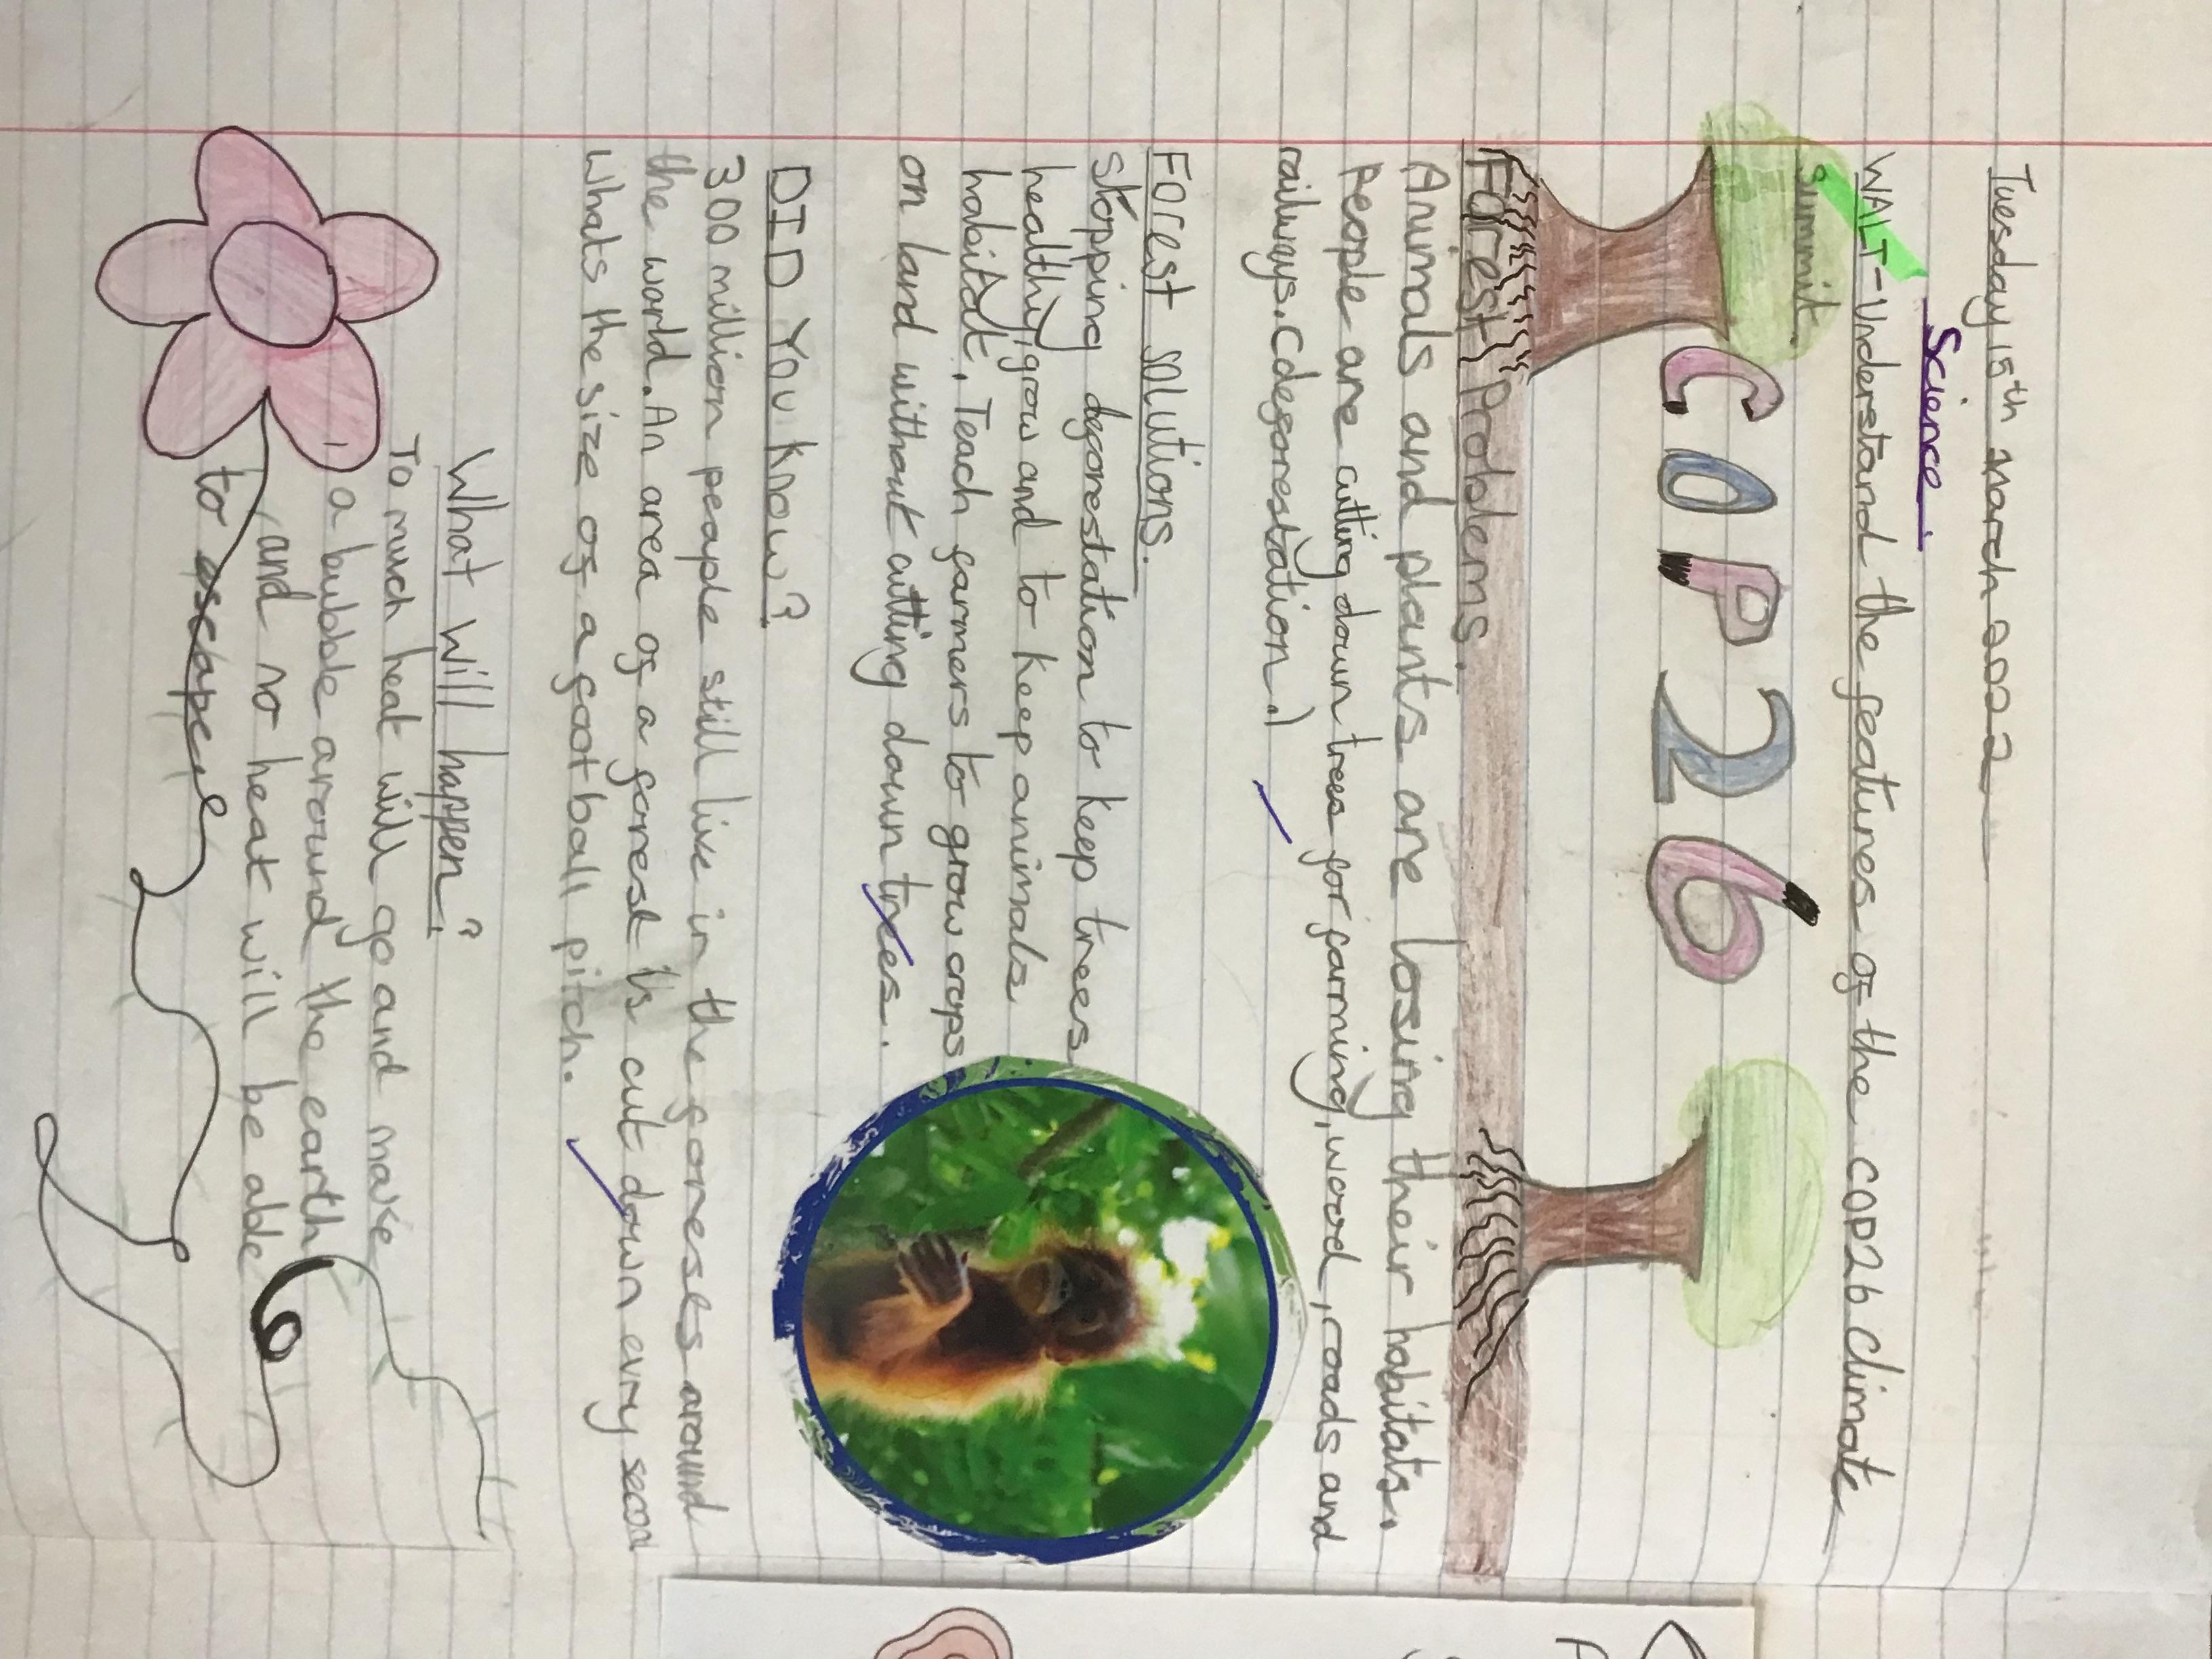 Tuesday 15th march 2022
Science.
WALT-Understand the features of the COP26 climate
summit.
COP26
Forest Problems.
Animals and plants are losing their habitats.
People are cutting down trees for farming, wood, roads and
railways. (deforestation.)
Forest solutions.
stopping deforestation to keep trees
healthy, grow and to keep animals
habitat. Teach farmers to grow crops
on land without cutting down trees.
DID You Know?
300 million people still live in the foreses around
the world. An area of a forest is cut down evry secon
whats the size of a football pitch.
What will happen?
To much heat will go and make
a bubble around the earth
and no heat will be able
to escape